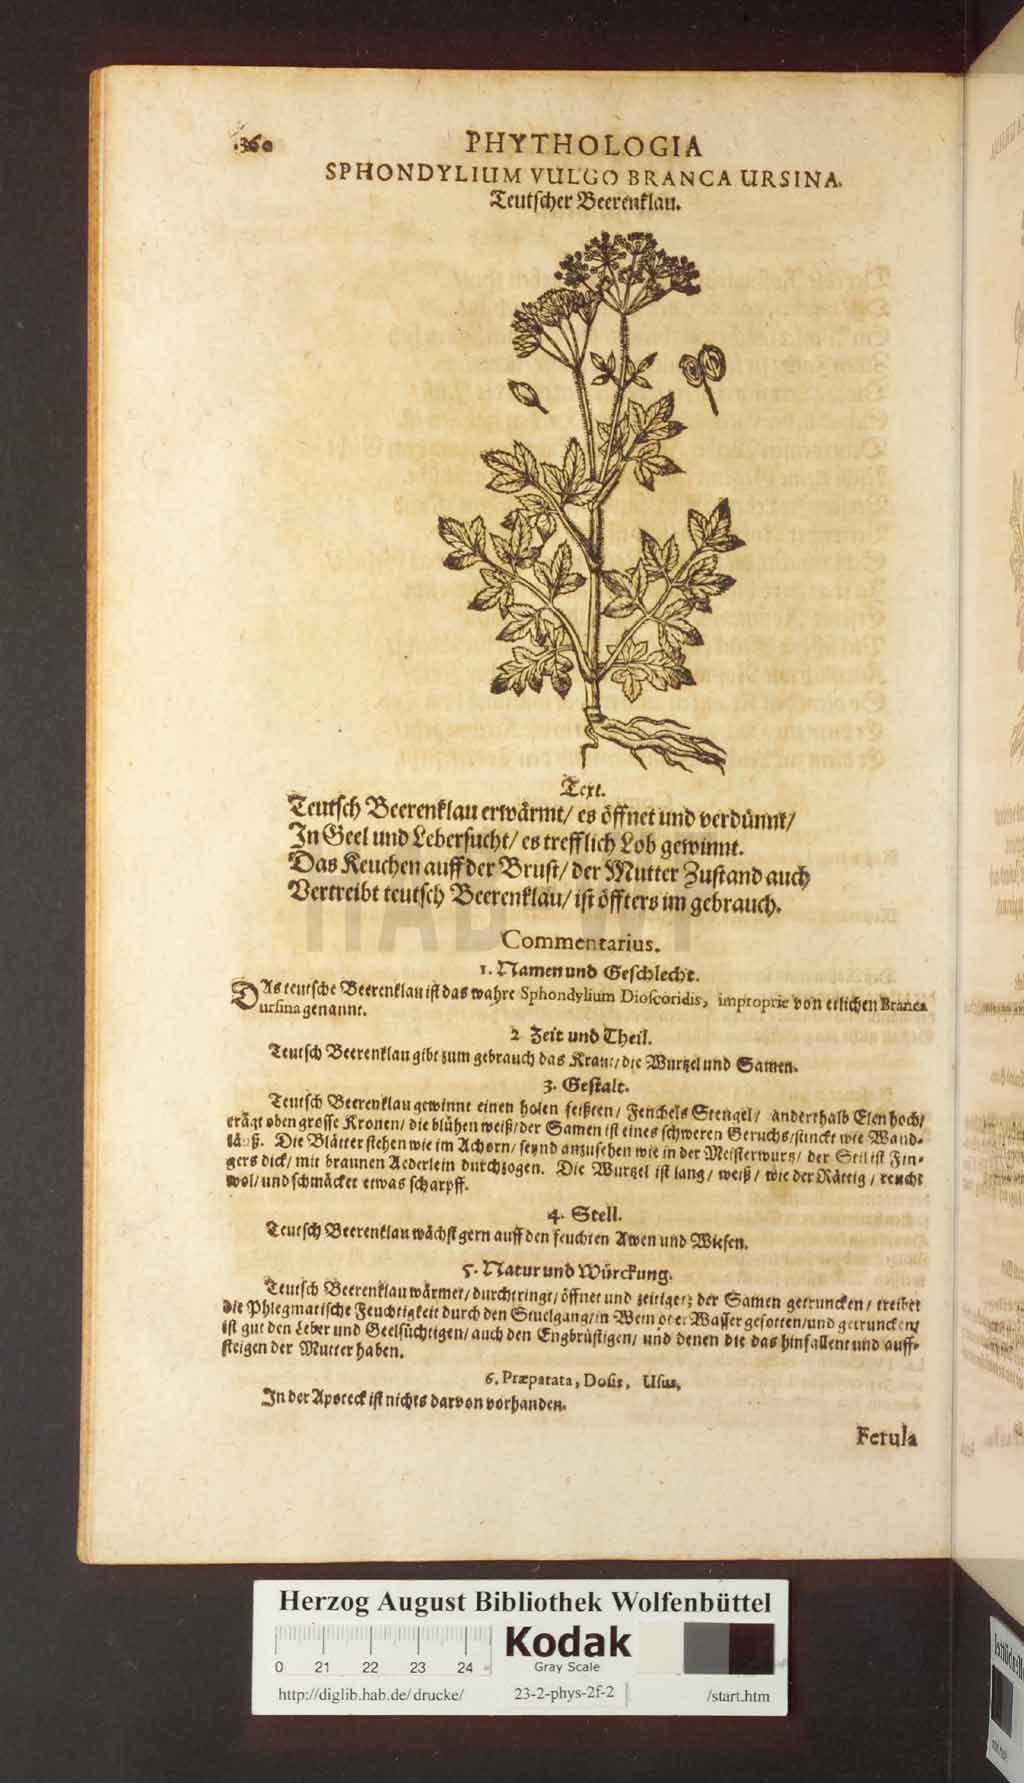 360
PHYTHOLOGIA
SPHONDYLIUM VULGO BRANCA URSINA.
Teutscher Beerenklau.
Text.
Teutsch Beerenklau erwärmt/ es öffnet und verdünnt/
In Geel und Lebersucht/ es trefflich Lob gewinnt.
Das Keuchen auff der Brust/ der Mutter Zustand auch
Vertreibt teutsch Beerenklau/ ist öffters im gebrauch.
HAB
Commentarius.
1. Namen und Geschlecht.
DAs teutsche Beerenklau ist das wahre Sphondylium Dioscoridis, improprie von etlichen Branca
ursina genannt.
2 Zeit und Theil.
Teutsch Beerenklau gibt zum gebrauch das Kraut/ die Wurtzel und Samen.
3. Gestalt.
Teutsch Beerenklau gewinnt einen holen feißten/ Fenchels Stengel/ anderthalb Elen hoch/
trägt oben grosse Kronen/ die blühen weiß/ der Samen ist eines schweren Geruchs/ stinckt wie Wand-
läuß. Die Blätter stehen wie im Achorn/ seynd anzusehen wie in der Meisterwurtz/ der Stil ist Fin-
gers dick/ mit braunen Aederlein durchzogen. Die Wurtzel ist lang/ weiß/ wie der Rättig/ reucht
wol/ und schmäcket etwas scharpff.
4. Stell.
Teutsch Beerenklau wächst gern auff den feuchten Awen und Wiesen.
5. Natur und Würckung.
Teutsch Beerenklau wärmet/ durchtringt/ öffnet und zeitiget; der Samen getruncken/ treibet
die Phlegmatische Feuchtigkeit durch den Stuelgang/ in Wein oder Wasser gesotten/ und getruncken/
ist gut den Leber und Geelsüchtigen/ auch den Engbrüstigen/ und denen die das hinfallent und auff-
steigen der Mutter haben.
6. Præparata, Dosis, Usus,
In der Apoteck ist nichts darvon vorhanden.
Ferula
Herzog August Bibliothek Wolfenbüttel
Kodak
Gray Scale
0 21 22 23 24
http://diglib.hab.de/drucke/ 23-2-phys-2f-2 /start.htm